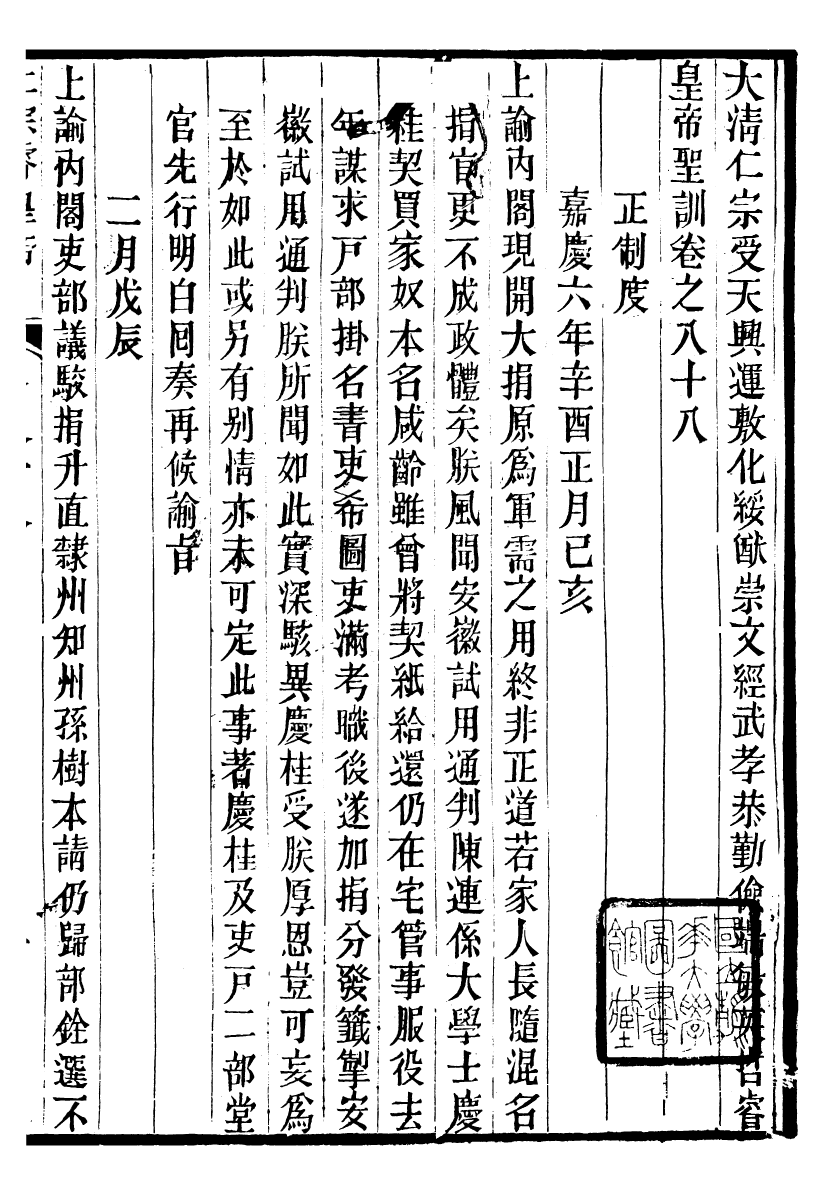 大淸仁宗受天興運敷化綏猷崇文經武孝恭勤儉端敏英哲睿
皇帝聖訓卷之八十八
正制度
嘉慶六年辛酉正月己亥
上諭內閣現開大捐原爲軍需之用終非正道若家人長隨混名
捐官更不成政體矣朕風聞安徽試用通判陳連係大學士慶
桂契買家奴本名咸齡雖曾將契紙給還仍在宅管事服役去
年謀求戸部掛名書吏希圖吏滿考職後遂加捐分發籤掣安
徽試用通判朕所聞如此實深駭異慶桂受朕厚恩豈可妄爲
至於如此或另有別情亦未可定此事著慶桂及吏戸二部堂
官先行明白囘奏再候諭旨
二月戊辰
上諭內閣吏部議駮捐升直隸州知州孫樹本請仍歸部銓選不
國立淸
華大學
圖書
館藏